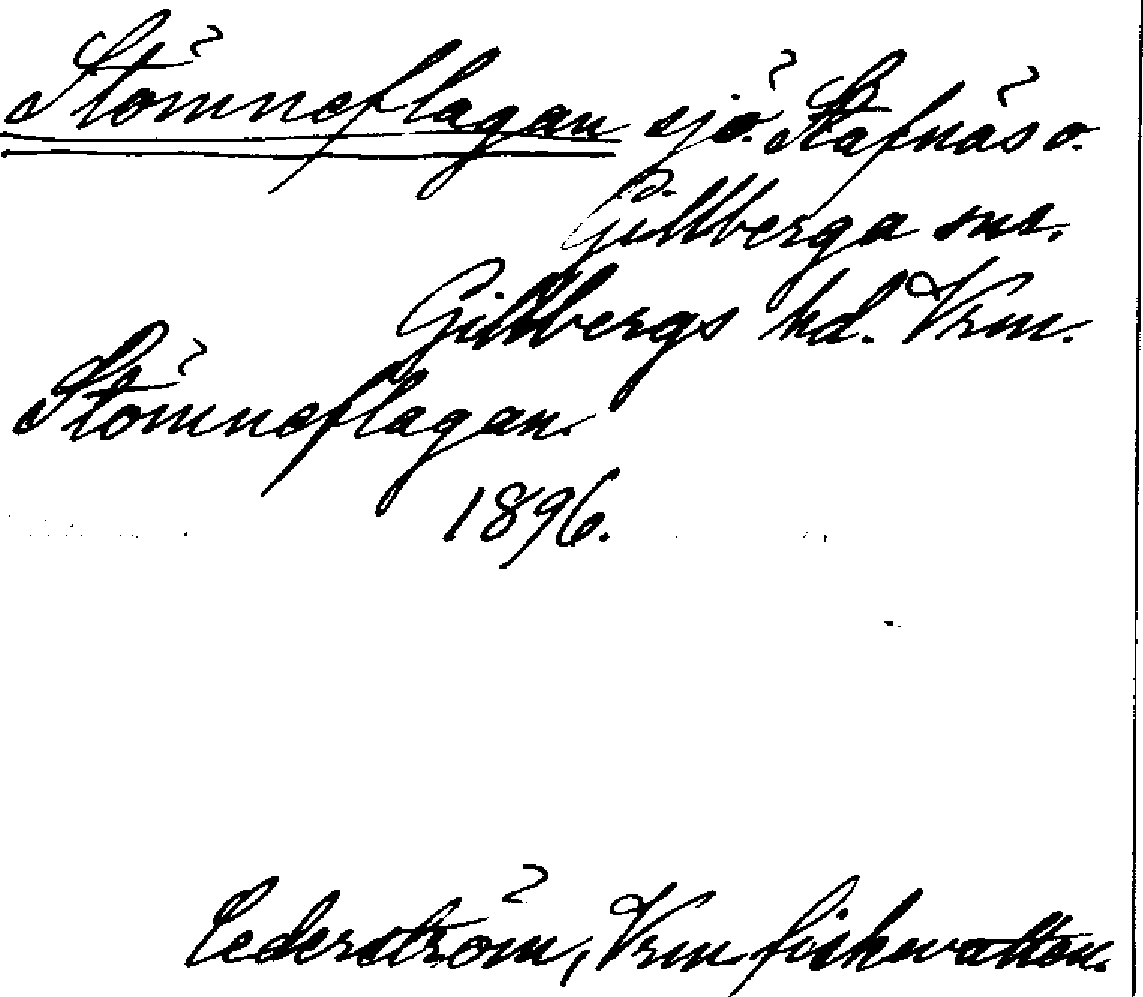 Stömneflagan sjö. Stafnäs o.
Gillberga snr.
Gillbergs hd. Vrm.
Stömneflagan.
1896.
Cederström, Vrm fiskevatten.